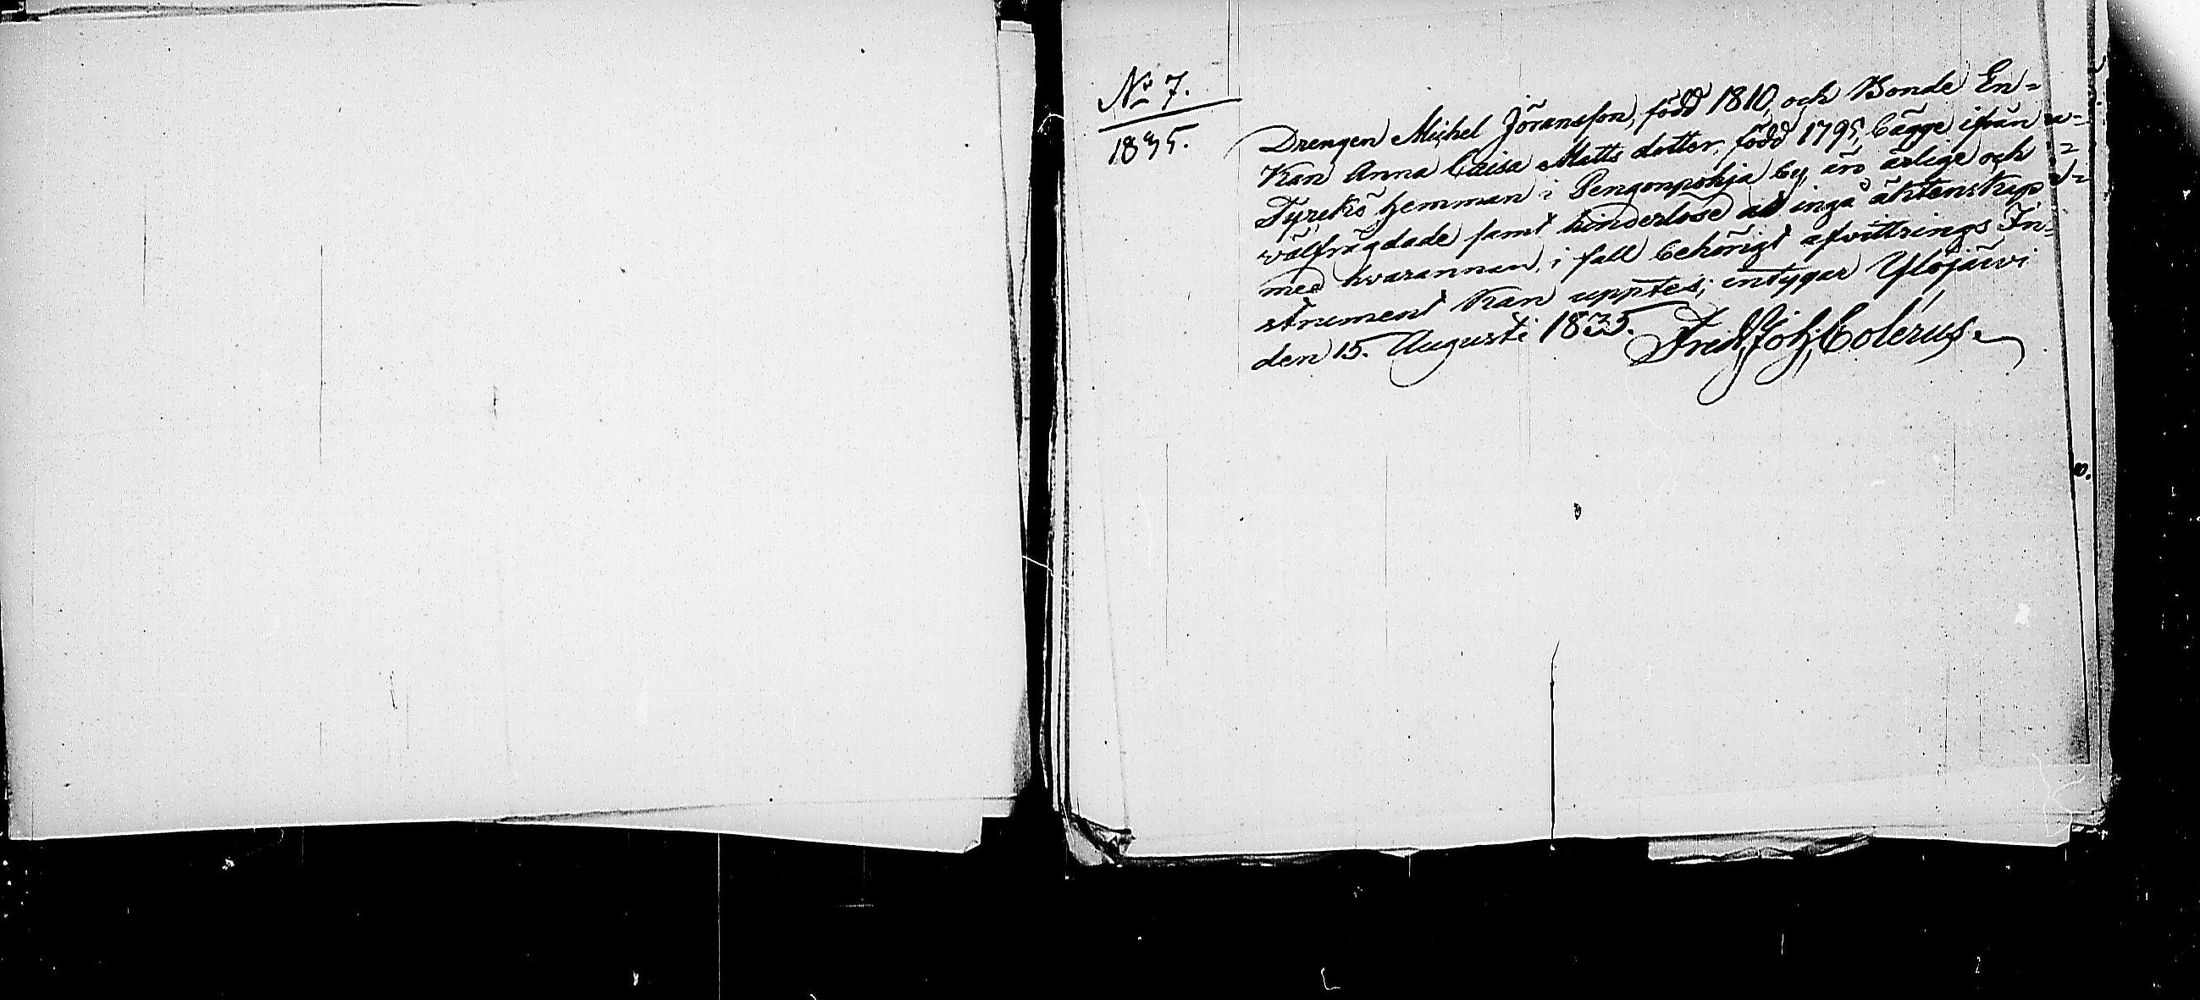 No 7.
1835.
Drengen Michel Jöransson, född 1810, och Bonde En=
kan Anna Caisa Matts dotter, född 1795, bägge ifrån
Tyrckö hemman i Pengonpohja by, äro ärlige och
välfrägdade samt hinderlöse at ingå äktenskap
med hvarannan, i fall behörigt afvittrings In=
strument kan upptes; intygar Ylöjärvi
den 15. Augusti 1835. Fred. Joh. Colerus.